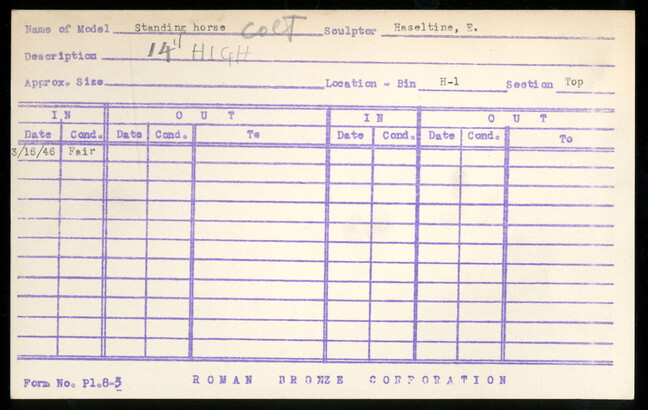 Name of Model Standing horse COLT Sculptor Haseltine, E.
Description 14" HIGH
Approx. Size Location - Bin H-1 Section Top
IN OUT IN OUT
Date Cond. Date Cond. To Date Cond. Date Cond. To
3/16/46 Fair
Form No. P1.8-5 ROMAN BRONZE CORPORATION